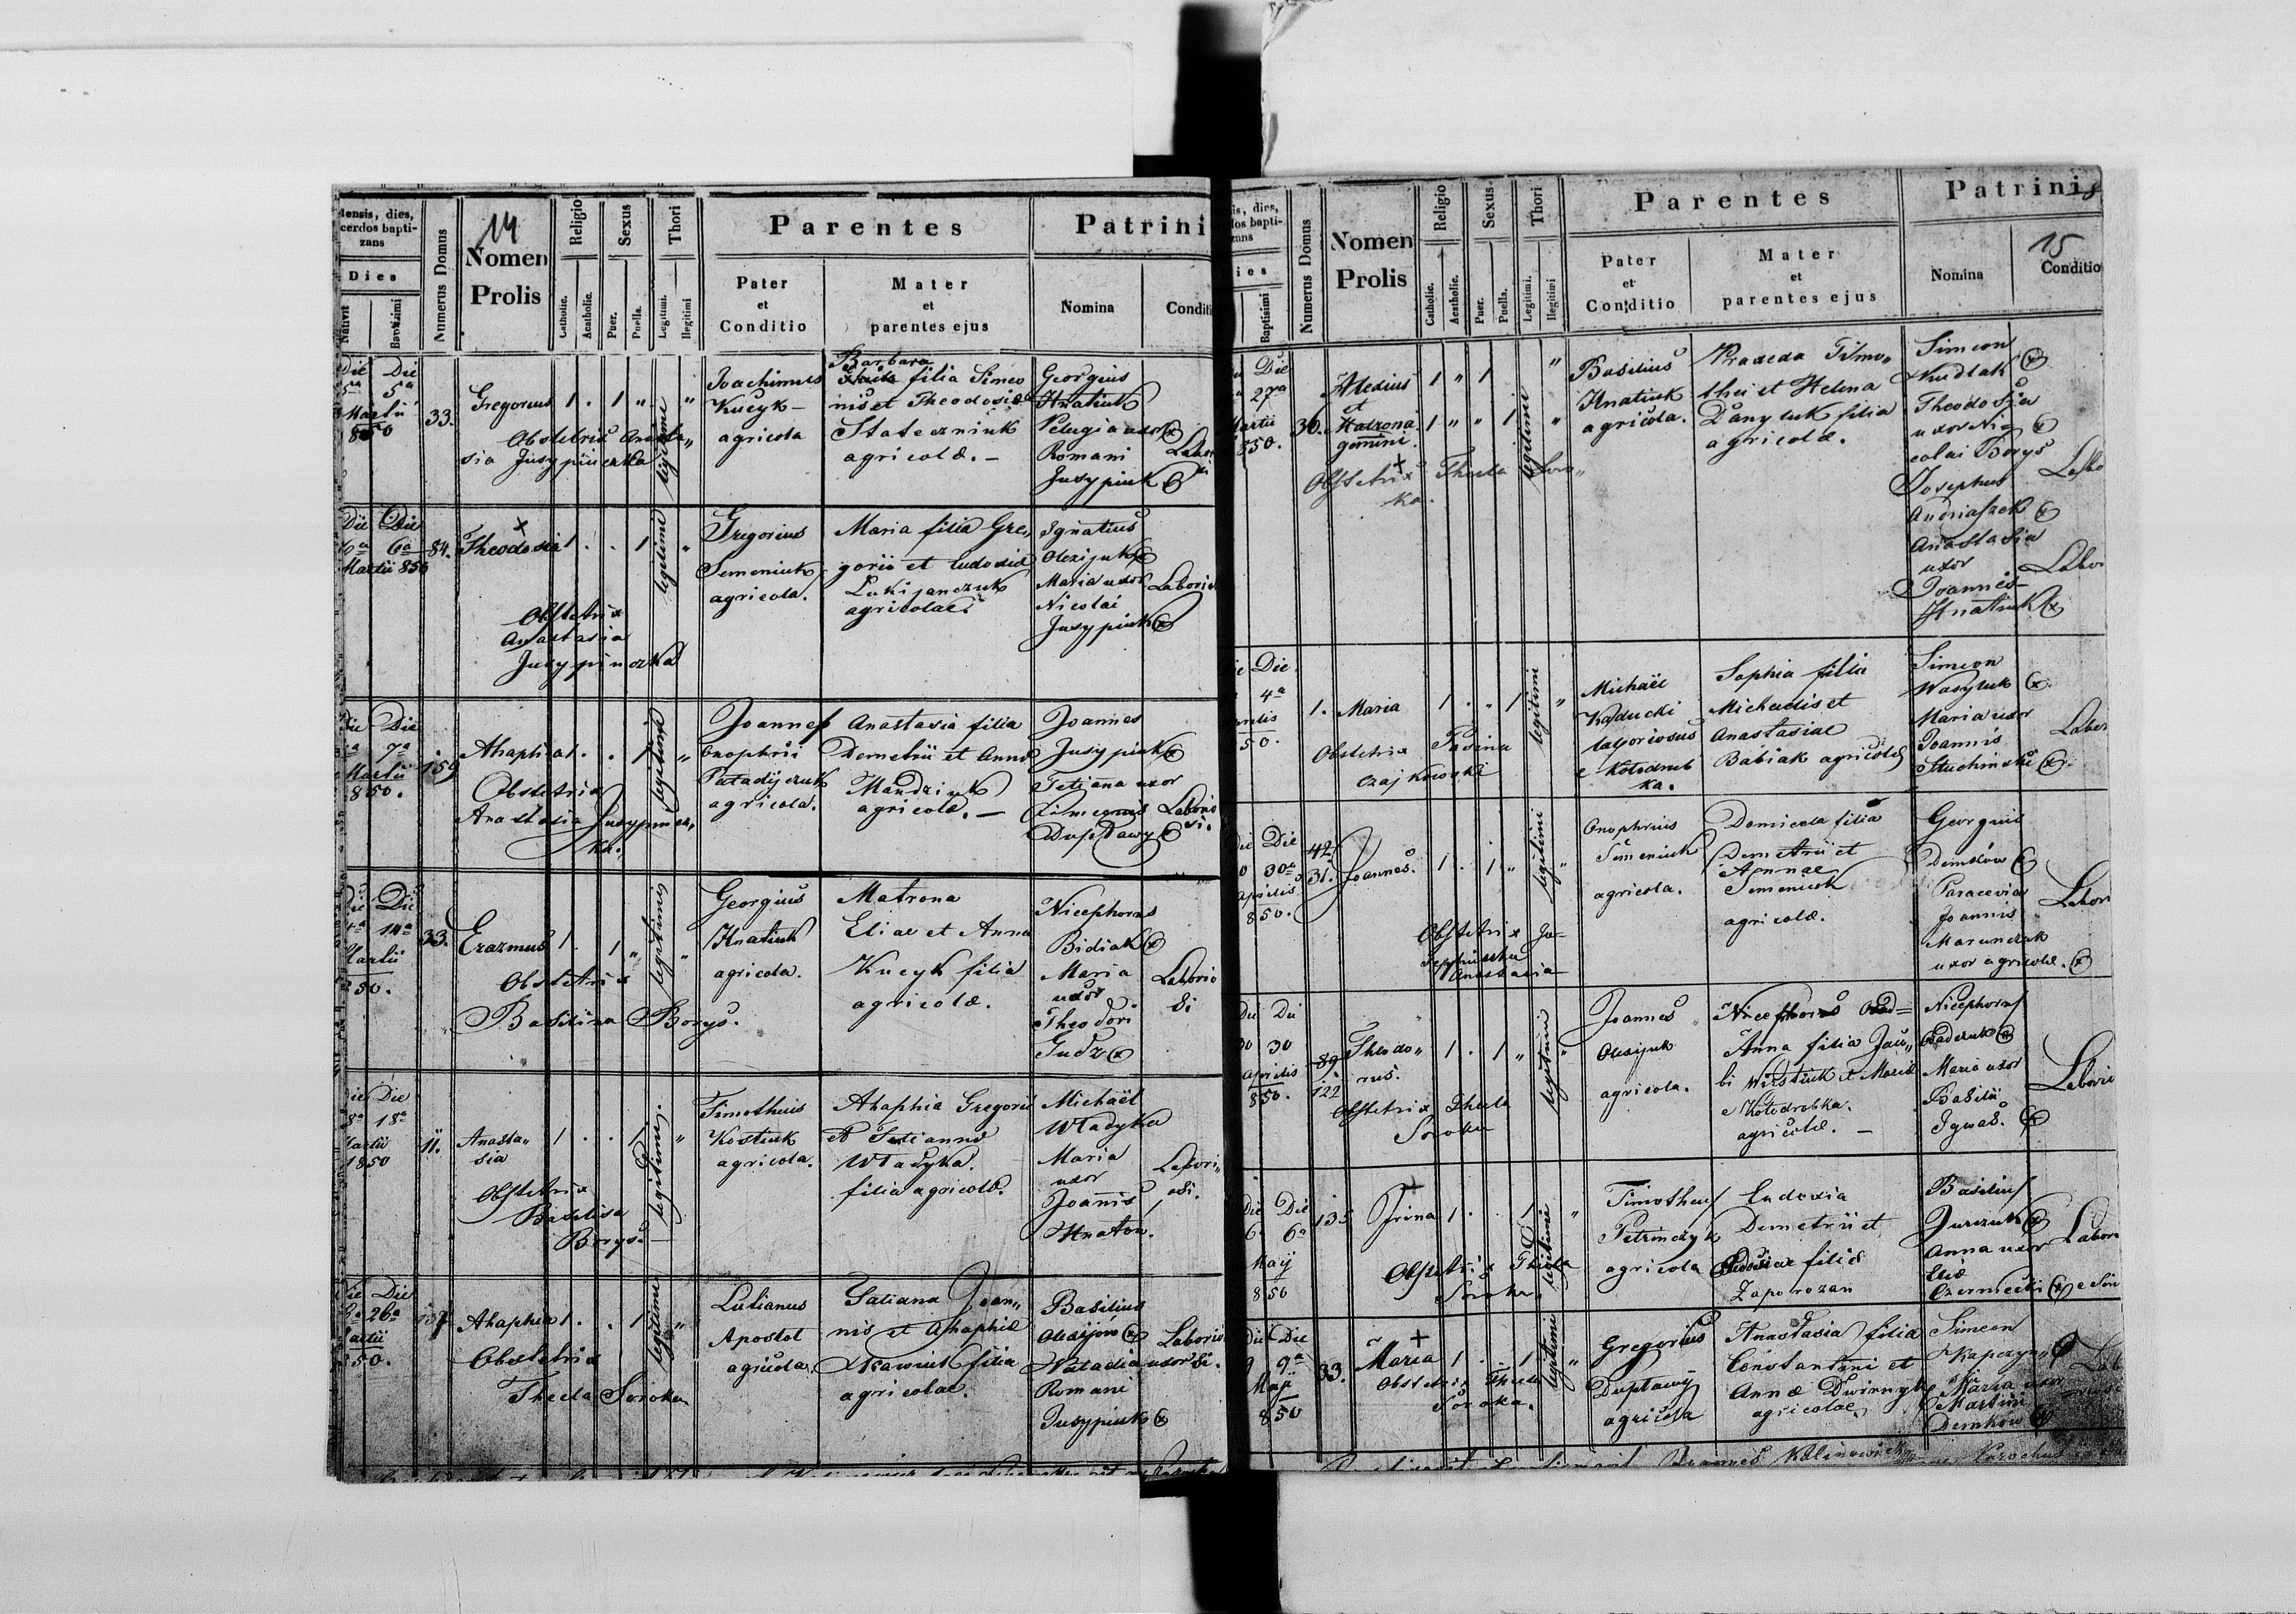 Mensis, dies,
cerdos bapti-
zans
Dies
Nativit
Baptisimi
Numerus Domus
14
Nomen
Prolis
Religio
Catholic.
Acatholic.
Sexus
Puer.
Puella.
Thori
Legitimi.
Illegitimi
Parentes
Pater
et
Conditio
Mater
et
parentes ejus
Patrini
Nomina
Conditi
Die Die
5a 5a
Martii
850
33.
Gregorius 1 . 1 "
Obstetrix Anasta-
sia Jusypiuczka
legitimi
Joachimus
Kucyk -
agricola
Barbara
filia Simeo
nis et Theodosiæ
Stateczniuk
agricolæ. -
Georgius
Hnatiuk
Pelagia uxor
Romani
Jusypiuk
Labori
Die Die
6a 6a
Martii 850
84.
Theodosia 1 . . 1
Obstetrix
Anastasia
Jusypiuczka
legitimi
Gregorius
Semeniuk
agricola.
Maria filia Gre,,
gorii et Eudoxiæ
Lukijanczuk
agricolae.
Ignatius
Olexijuk
Maria uxor
Nicolai
Jusypiuk
Laborio
Die Die
7a
Martii
850.
159
Ahaphia 1 . . 1
Obstetrix
Anastasia Jusypiucz,,
ka.
legitimi
Joannes
Onophrii
agricola.
Anastasia filia
Demetrii et Annæ
Mandziuk
agricolæ. -
Joannes
Jusypiuk
Tetiana uxor
Duptawy
Laborio
si.
Die Die
14a
Martii
850.
33.
Erazmus 1 . 1 "
Obstetrix
Basilina Borys.
legitimis
Georgius
Hnatiuk
agricola.
Matrona
Eliae et Anna
Kucyk filia
agricolæ.
Nicephorus
Bidiak
Maria
uxor
Theodori
Gudz
Laborio
si
Die Die
8a 18a
Martii
1850
11.
Anasta,,
sia
1 . . 1
Obstetrix
Basilisa
Borys.
legitimi.
Timotheus
Kostiuk
agricola.
Ahaphia Gregorii
et Tatiannæ
Wladyka.
filia agricolæ.
Michaël
Wladyka
Maria
uxor
Joannis
Hnatow.
Labori,,
osi.
Die Die
26a
Martii
850.
107
Ahaphia 1 . . 1
Obstetrix
Thecla Soroka
legitimi
Lulianus
Apostol
agricola.
Tatiana Joan,,
nis et Ahaphiæ
filia
agricolae.
Basilius
Olexijow
Natalia uxor
Romani
Jusypiuk
Laborio
si.
is, dies,
dos bapti-
zans
ies
Baptisimi
Numerus Domus
Nomen
Prolis
Religio
Catholic.
Acatholic.
Sexus
Puer.
Puella.
Thori
Legitimi
Illegitimi
Parentes
Pater
et
Conditio
Mater
et
parentes ejus
Patrini
15
Nomina
Conditio
Die
27a
Martii
850.
36.
Alexius 1 " 1
et
gemini.
Obstetrix Thecla Soro,,
ka.
legitimi
Basilius
Hnatiuk
agricola.
Praxeda Timo,,
thei et Helena
Danyluk filia
agricolæ.
Simeon
Kudlak
Theodosia
uxor Ni
colai Borys
Josephus
Andriaszek
Anastasia
uxor
Joannis
Hnatiuk
Labo
Labor
Die
4a
Aprilis
50.
1. Maria 1 . . 1
Obstetrix
legitimi
Michaël
Kaducki
laboriosus
e Kolodrub
ka.
Sophia filia
Michaelis et
Anastasiae
Babiak agricolæ
Simeon
Wasyluk
Maria uxor
Joannis
Labor
Die Die
30a
Aprilis
850.
42
31.
Joannes. 1 . 1 "
Obstetrix Ju-
Anastasia
legitimi
Onophrius
Simeniuk
agricola.
Domicela filia
Demetrii et
Annae
Simeniuk
agricolæ.
Georgius
Demkow
Paracevia
Joannis
Marunczak
uxor agricolæ.
Labori
Die Die
30 30
Aprilis
850.
89
122
Theodo,,
rus.
1 . 1 "
Obstetrix Thecla
Soroka
legitimi
Joannes
Olexijuk
agricola.
Anna filia Jaco,,
bi et Mariæ
e Kolodrobka.
agricolæ. -
Nicephorus
Maria uxor
Basilii
Ignas.
Laborio
Die Die
6. 6a
Maij
850
135
Irina 1 . . 1
Obstetrix Thecla
Soroka
legitimi
Timotheus
Petrindzyk
agricola
Eudoxia
Demetrii et
filia
Zaporozan
Basilius
Jurczuk
Anna uxor
Eliæ
Czerniecki
Labori
Die Die
9 9a
Maji
850
33.
Maria 1 . . 1
Obstetrix Thecla
Soroka.
legitimi
Gregorius
Duptawy
agricola
Anastasia filia
Constantini et
Annæ Dwirnyk
agricolae.
Simeon
Maria uxor
Martini
Demkow
Lab